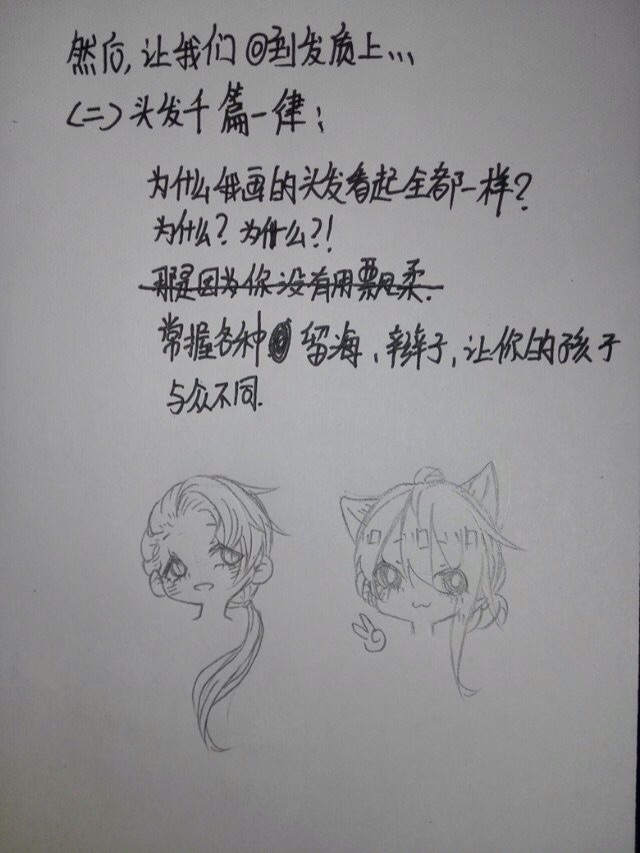 然后,让我们回到发质上...
(二)头发千篇一律:
为什么我画的头发看起全都一样?
为什么?为什么?!
那是因为你没有用飘柔.
常握各种留海、辫子,让你的孩子
与众不同.